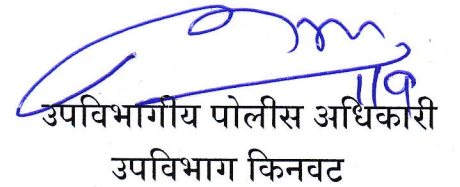 1/9
उपविभागीय पोलीस अधिकारी
उपविभाग किनवट